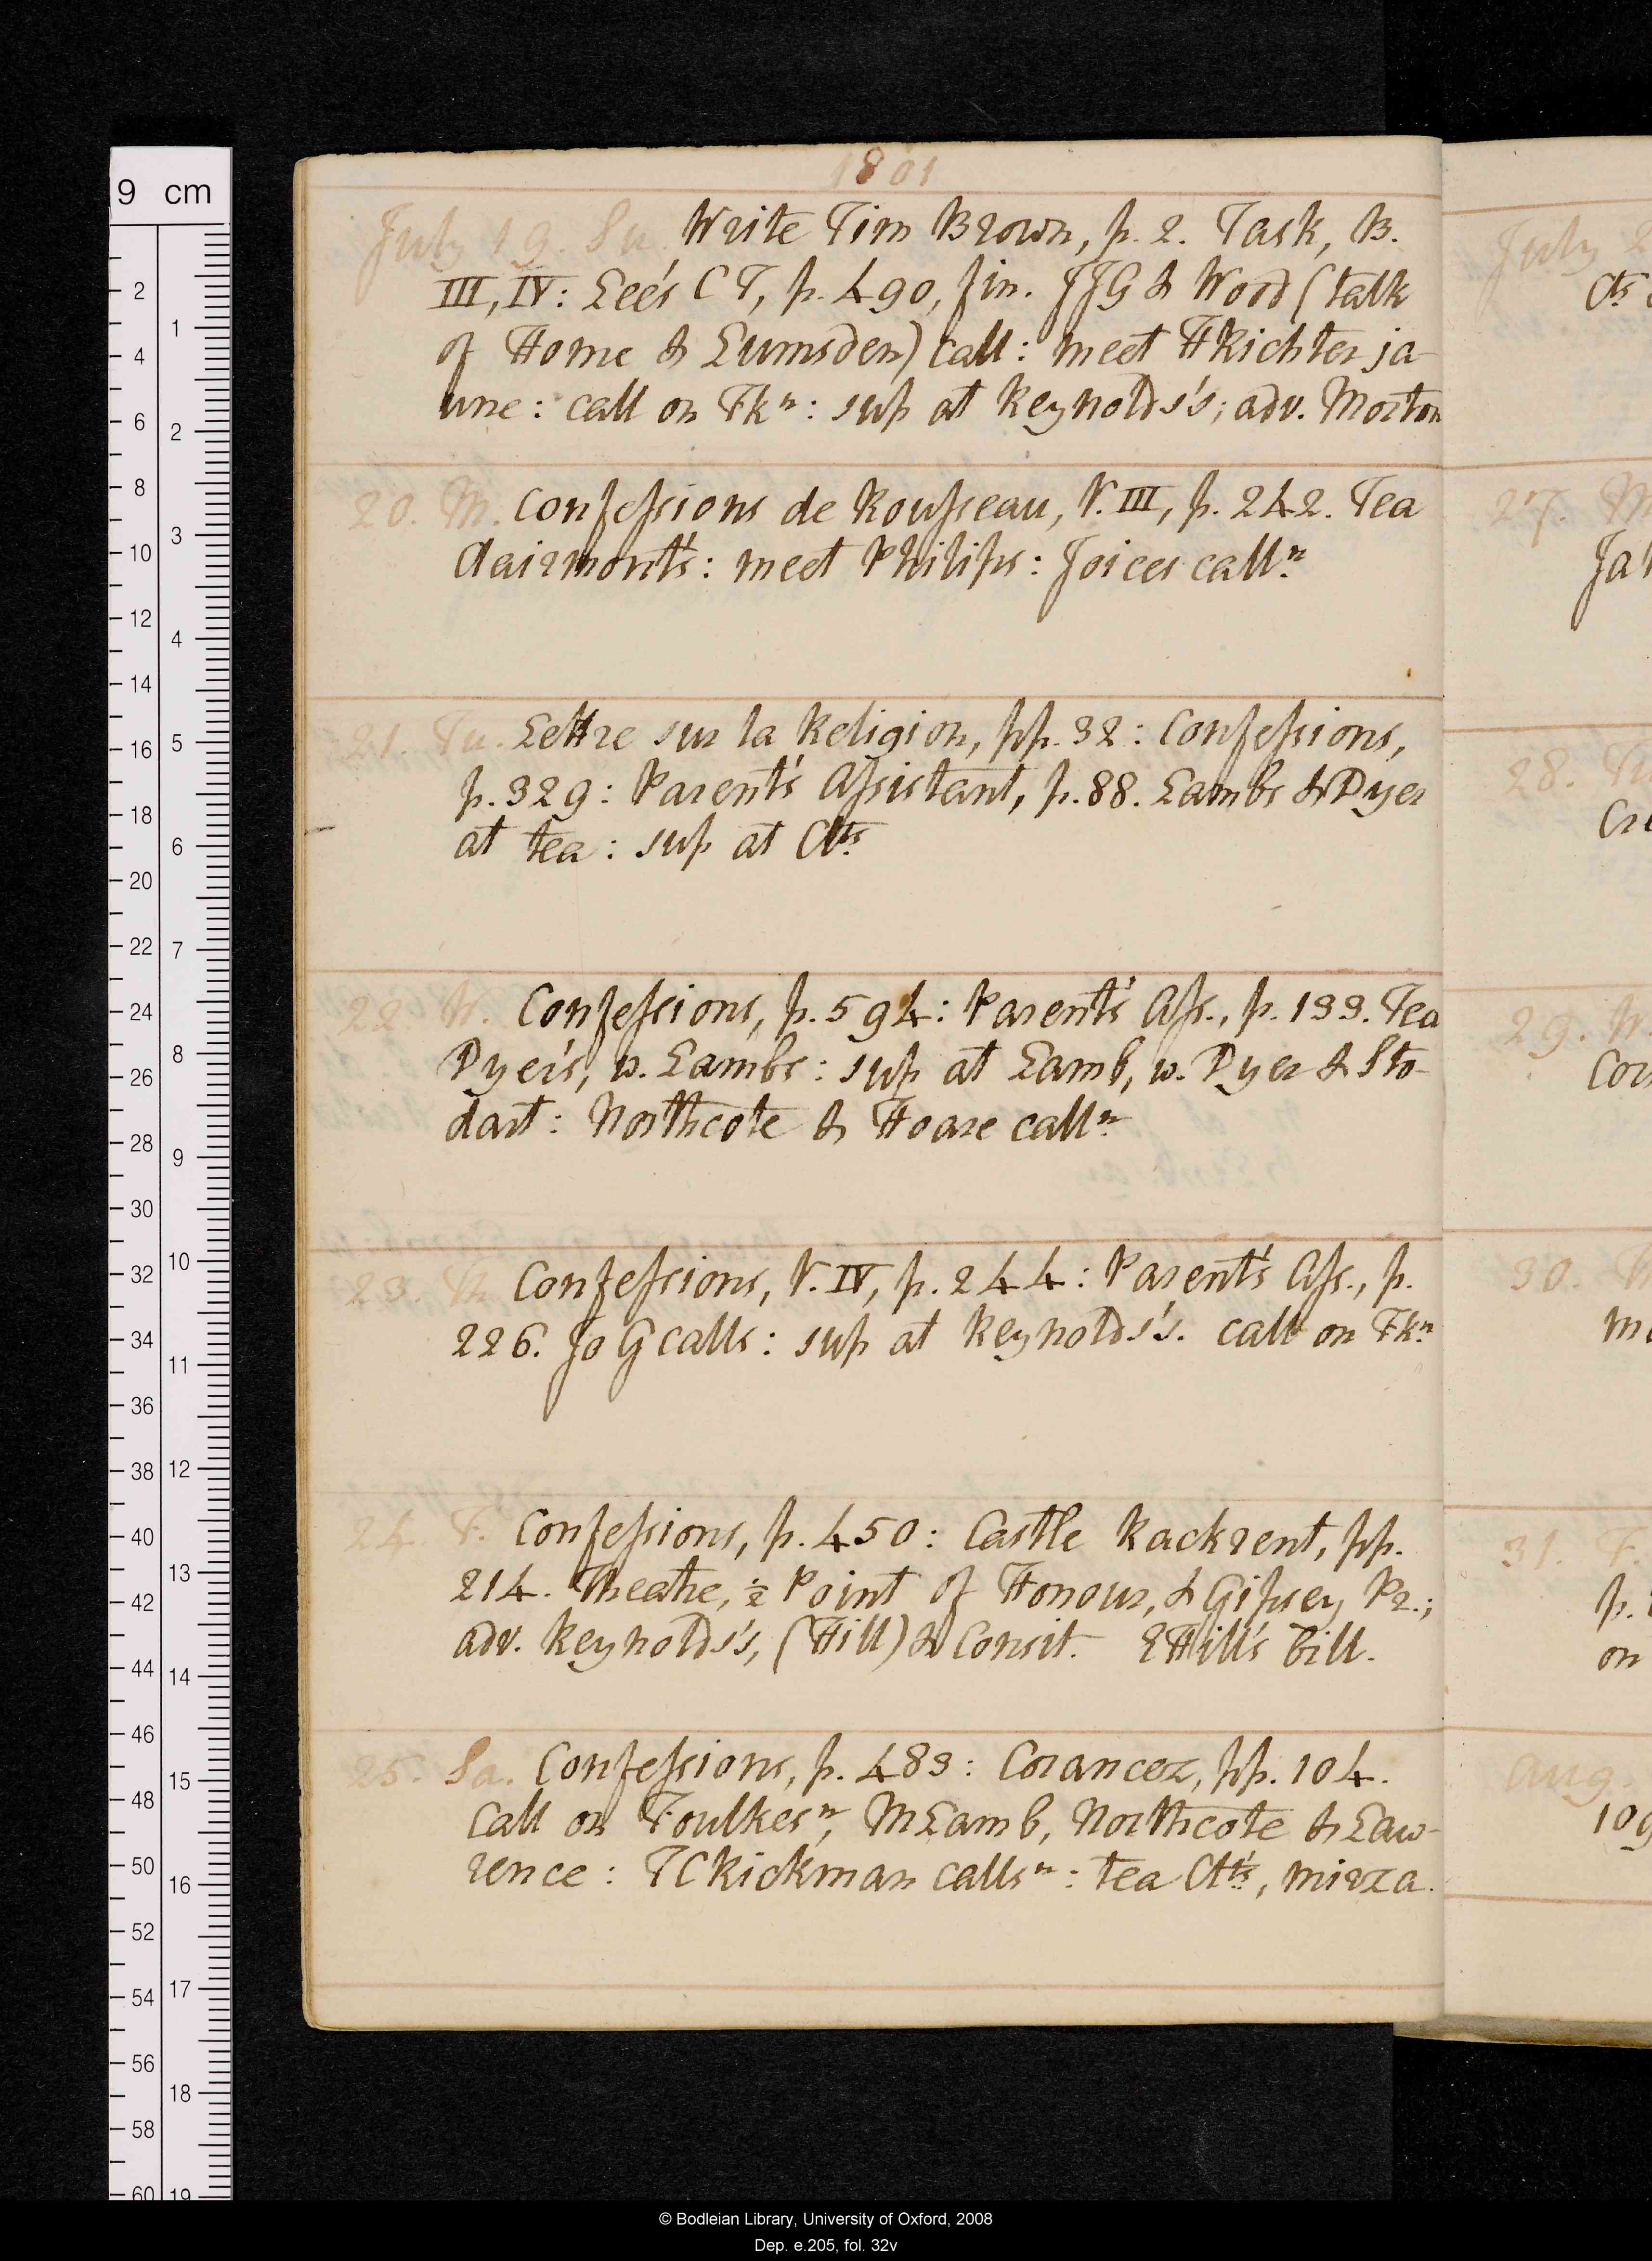 1801
July 19. Su. Write Tim Brown, p. 2. Task, B.
III, IV: Lee's CT, p. 490, fin. JJG & Wood (talk
of Home & Lumsden) call: meet HRichter ja-
une: call on Fkn: sup at Reynolds's; adv. Morton
20. M. Confessions de Rousseau, V. III, p. 242. Tea
Clairmont's: meet Philips: Joices calln
21. Tu. Lettre sur la Religion, pp. 32: Confessions,
p. 329: Parent's Assistant, p. 88. Lambs & Dyer
at tea: sup at Cts
22. W. Confessions, p. 594: Parent's Ass., p. 199. Tea
Dyer's, w. Lambs: sup at Lamb, w. Dyer & Sto-
dart: Northcote & Hoare calln
23. Th. Confessions, V. IV, p. 244: Parent's Ass., p.
226. Jo G calls: sup at Reynolds's. call on Fkn
24. F. Confessions, p. 450: Castle Rackrent, pp.
214. Theatre, ½ Point of Honour, & Gipsey Pr.;
adv. Reynolds's, (Hill) & Consit. EHill's bill.
25. Sa. Confessions, p. 483: Corancez, pp. 104.
Call on Foulkesn, MLamb, Northcote & Law-
rence: TCRickman callsn: tea Ct's, Mirza.
July
Cts
27. M
28. Tu
29. W
30.
31. F.
p.
on
Aug.
© Bodleian Library, University of Oxford, 2008
Dep. e.205, fol. 32v